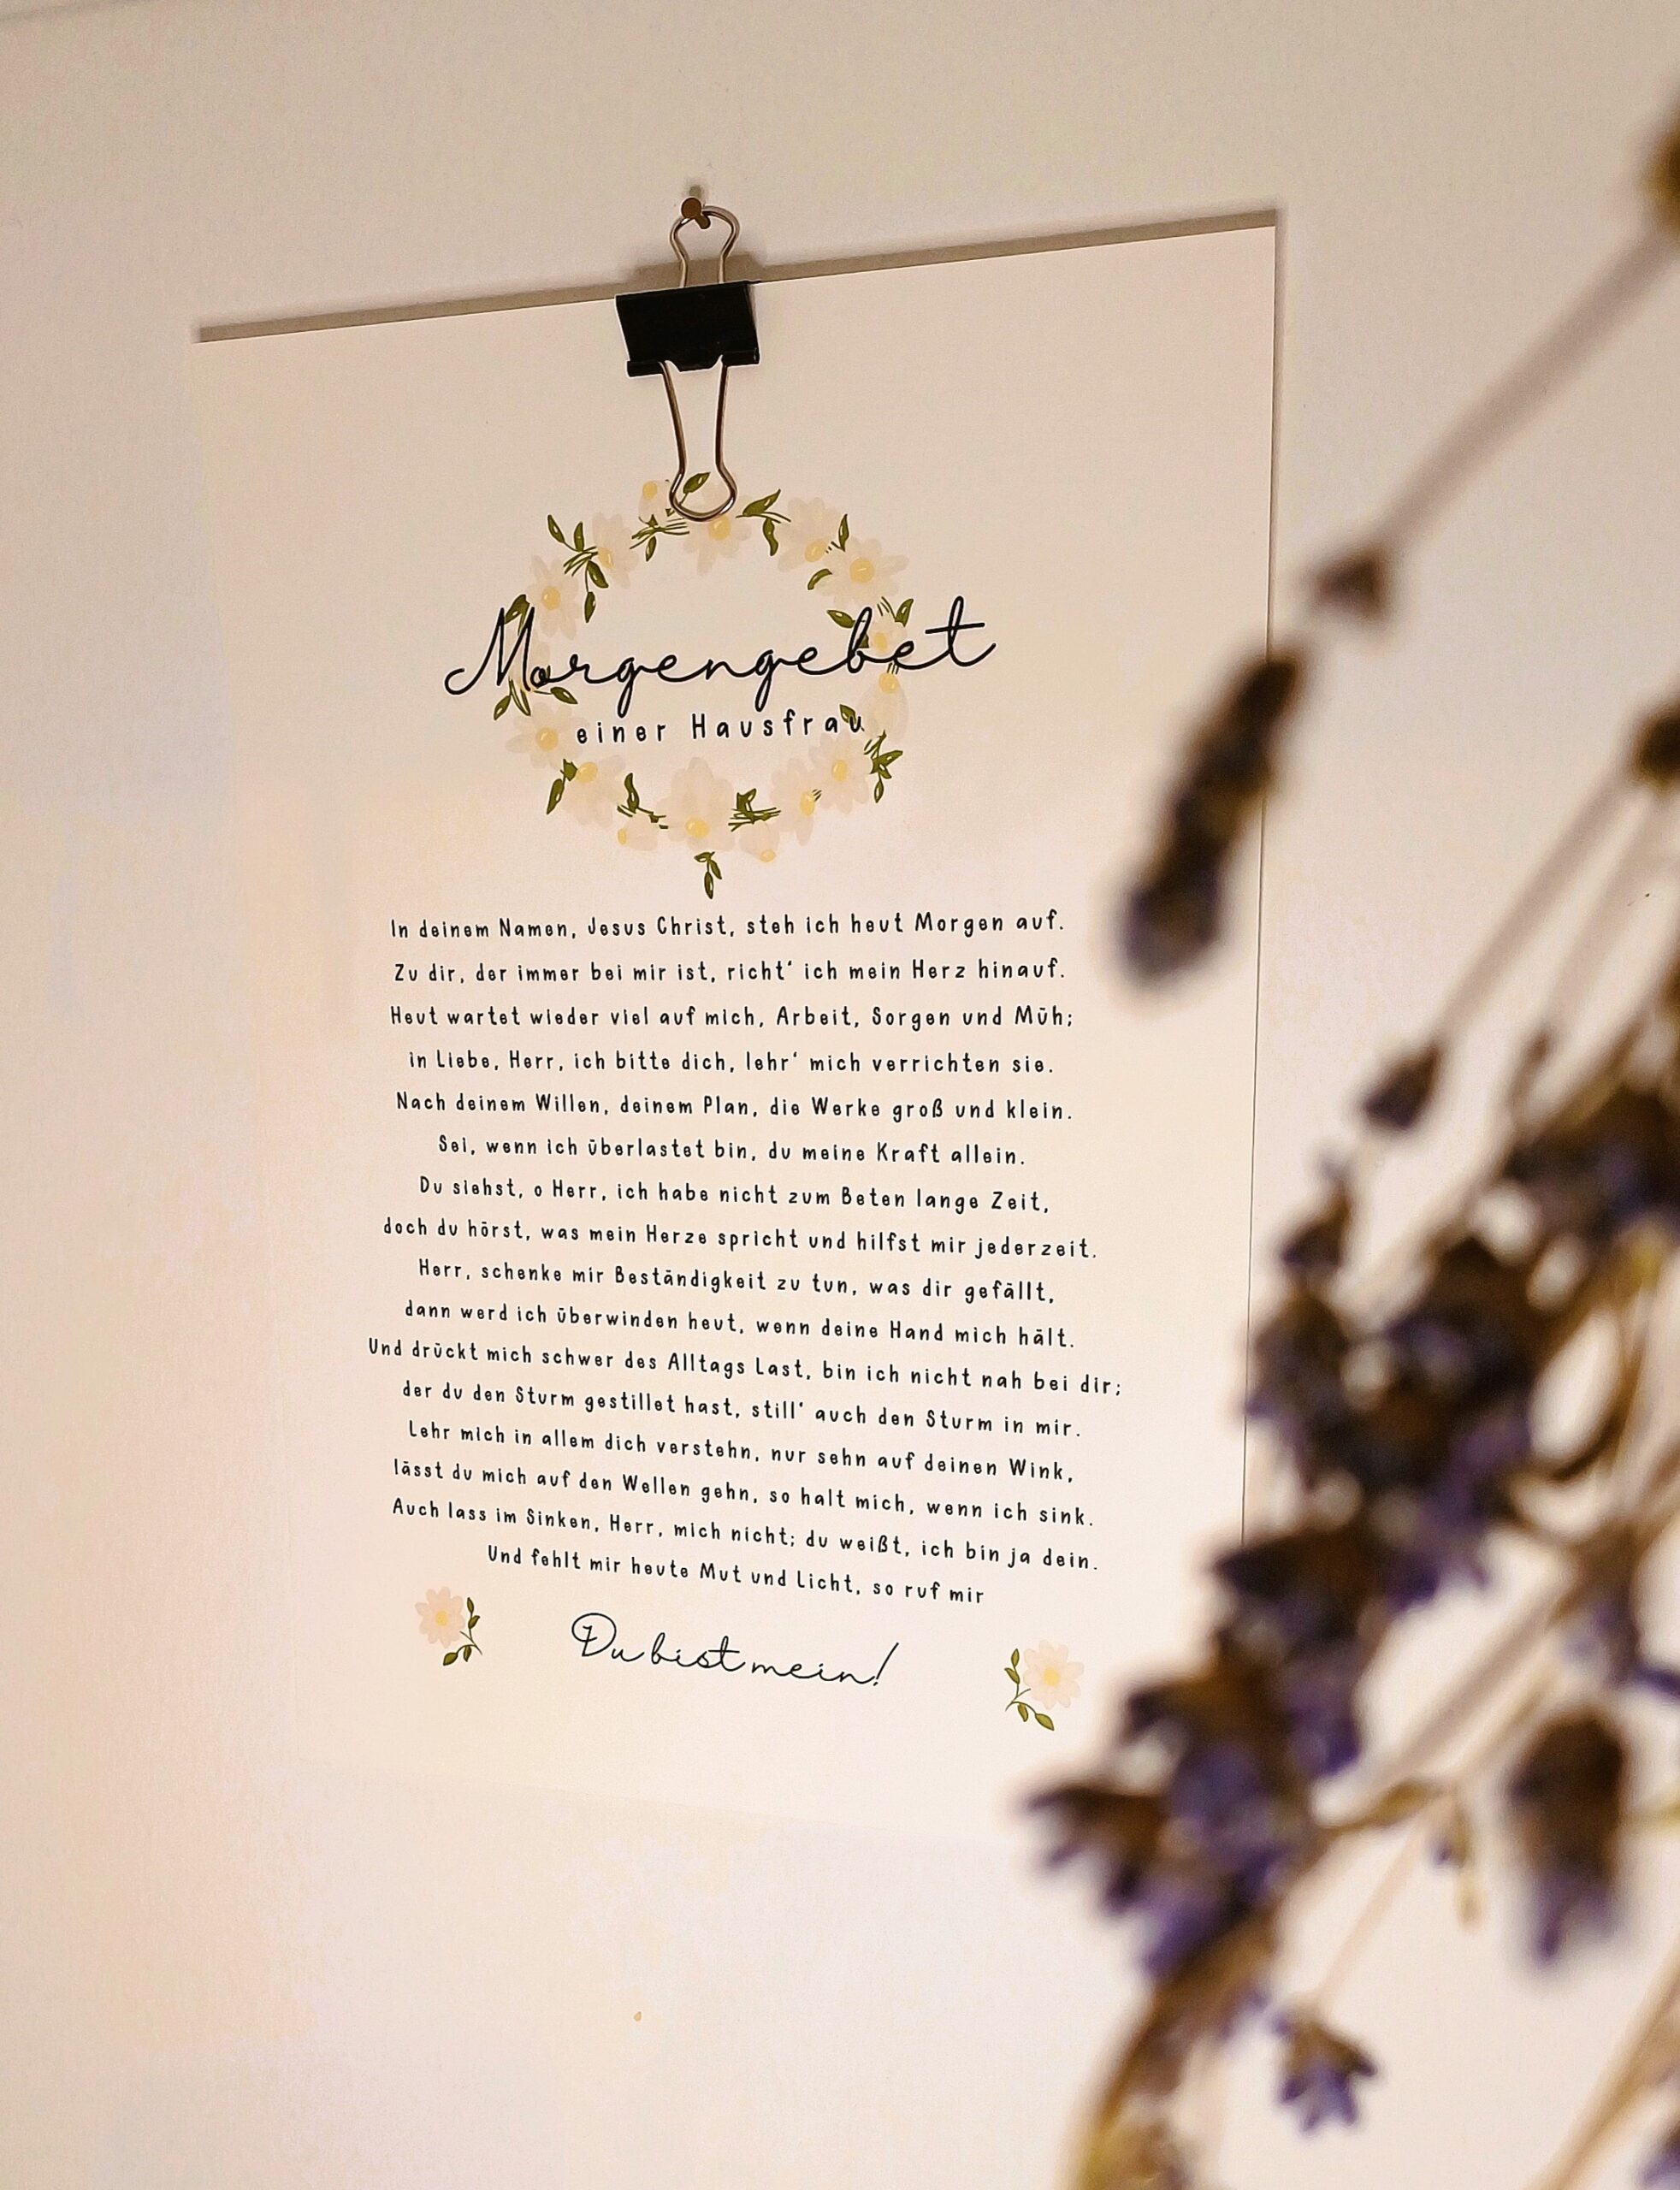 Morgengebet
einer Hausfrau
In deinem Namen, Jesus Christ, steh ich heut Morgen auf.
Zu dir, der immer bei mir ist, richt' ich mein Herz hinauf.
Heut wartet wieder viel auf mich, Arbeit, Sorgen und Müh;
in Liebe, Herr, ich bitte dich, lehr' mich verrichten sie.
Nach deinem Willen, deinem Plan, die Werke groß und klein.
Sei, wenn ich überlastet bin, du meine Kraft allein.
Du siehst, o Herr, ich habe nicht zum Beten lange Zeit,
doch du hörst, was mein Herze spricht und hilfst mir jederzeit.
Herr, schenke mir Beständigkeit zu tun, was dir gefällt,
dann werd ich überwinden heut, wenn deine Hand mich hält.
Und drückt mich schwer des Alltags Last, bin ich nicht nah bei dir;
der du den Sturm gestillet hast, still' auch den Sturm in mir.
Lehr mich in allem dich verstehn, nur sehn auf deinen Wink,
lässt du mich auf den Wellen gehn, so halt mich, wenn ich sink.
Auch lass im Sinken, Herr, mich nicht; du weißt, ich bin ja dein.
Und fehlt mir heute Mut und Licht, so ruf mir
Du bist mein!